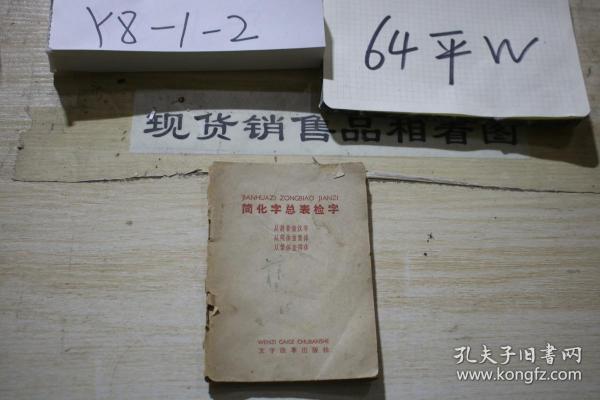 Y8-1-2
64平W
现货销售品相看图
JIANHUAZI ZONGBIAO JIANZI
简化字总表检字
从拼音查汉字
从简体查繁体
从繁体查简体
WENZI GAIGE CHUBANSHE
文字改革出版社
孔夫子旧书网
www.kongfz.com